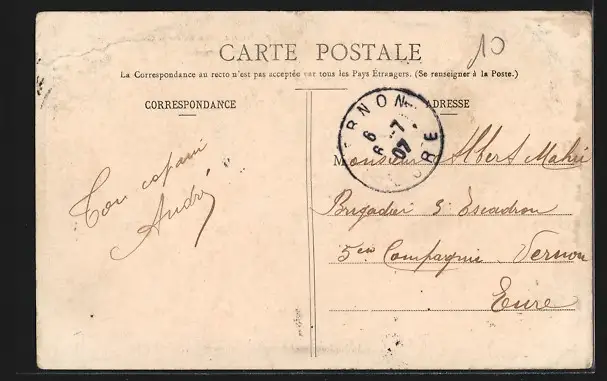 10
CARTE POSTALE
La Correspondance au recto n'est pas acceptée par tous les Pays Étrangers. (Se renseigner à la Poste.)
CORRESPONDANCE
ADRESSE
VERNON
6 -7
07
EURE
Ton copain
André
Monsieur Albert Mahieu
Brigadier 3e Escadron
5em Compagnie Vernon
Eure